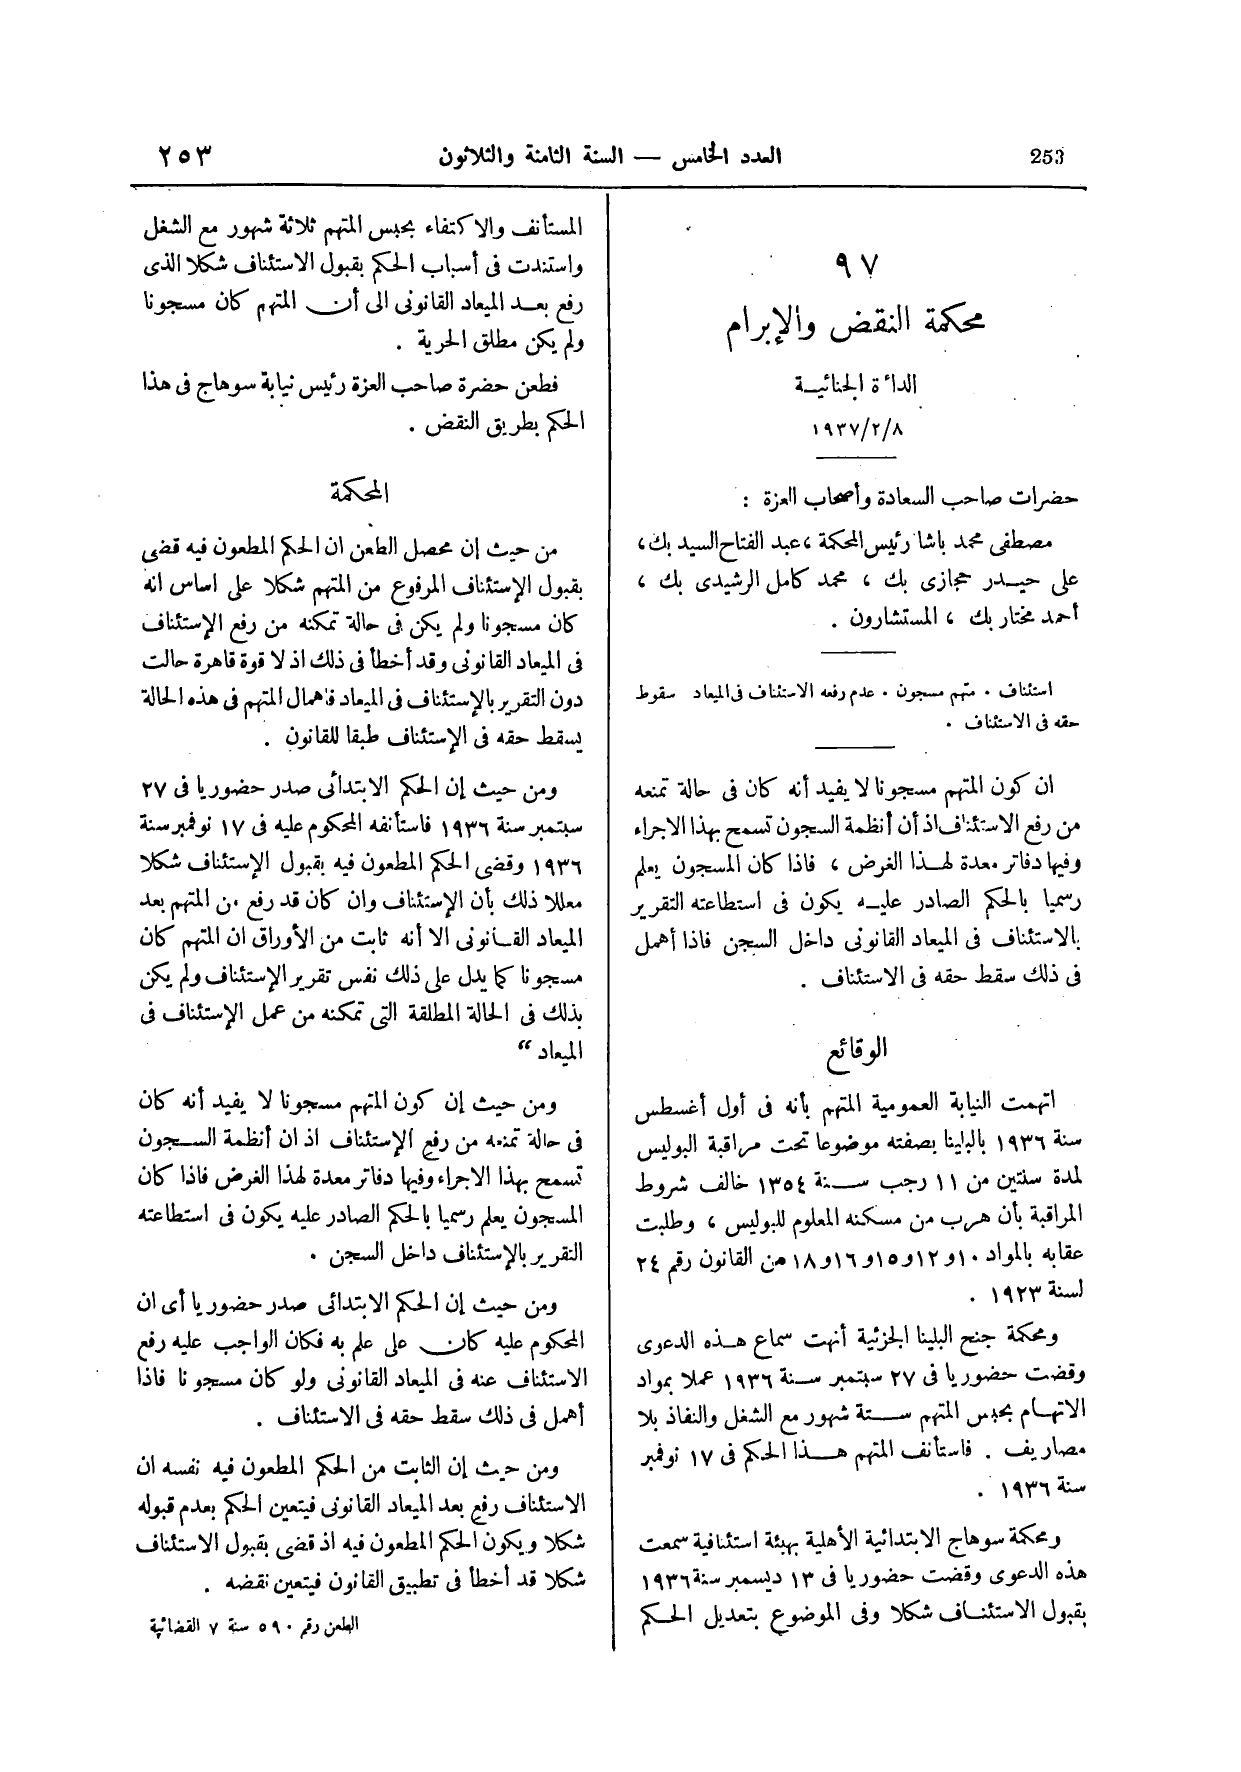 253
العدد الخامس — السنة الثامنة والثلاثون
٢٥٣
٩٧
محكمة النقض والإبرام
الدائرة الجنائية
١٩٣٧/٢/٨
حضرات صاحب السعادة وأصحاب العزة :
مصطفى محمد باشا رئيس المحكمة ، عبد الفتاح السيد بك ،
على حيدر حجازى بك ، محمد كامل الرشيدى بك ،
أحمد مختار بك ، المستشارون .
استئناف . متهم مسجون . عدم رفعه الاستئناف فى الميعاد سقوط
حقه فى الاستئناف .
ان كون المتهم مسجونا لا يفيد أنه كان فى حالة تمنعه
من رفع الاستئناف اذ أن أنظمة السجون تسمح بهذا الاجراء
وفيها دفاتر معدة لهذا الغرض ، فاذا كان المسجون يعلم
رسميا بالحكم الصادر عليه يكون فى استطاعته التقرير
بالاستئناف فى الميعاد القانونى داخل السجن فاذا أهمل
فى ذلك سقط حقه فى الاستئناف .
الوقائع
اتهمت النيابة العمومية المتهم بأنه فى أول أغسطس
سنة ١٩٣٦ بالبلينا بصفته موضوعا تحت مراقبة البوليس
لمدة سنتين من ١١ رجب سنة ١٣٥٤ خالف شروط
المراقبة بأن هرب من مسكنه المعلوم للبوليس ، وطلبت
عقابه بالمواد ١٠ و١٢ و١٥ و١٦ و١٨ من القانون رقم ٢٤
لسنة ١٩٢٣ .
ومحكمة جنح البلينا الجزئية أنهت سماع هذه الدعوى
وقضت حضوريا فى ٢٧ سبتمبر سنة ١٩٣٦ عملا بمواد
الاتهام بحبس المتهم ستة شهور مع الشغل والنفاذ بلا
مصاريف . فاستأنف المتهم هذا الحكم فى ١٧ نوفمبر
سنة ١٩٣٦ .
ومحكمة سوهاج الابتدائية الأهلية بهيئة استئنافية سمعت
هذه الدعوى وقضت حضوريا فى ١٣ ديسمبر سنة ١٩٣٦
بقبول الاستئناف شكلا وفى الموضوع بتعديل الحكم
المستأنف والاكتفاء بحبس المتهم ثلاثة شهور مع الشغل
واستندت فى أسباب الحكم بقبول الاستئناف شكلا الذى
رفع بعد الميعاد القانونى الى أن المتهم كان مسجونا
ولم يكن مطلق الحرية .
فطعن حضرة صاحب العزة رئيس نيابة سوهاج فى هذا
الحكم بطريق النقض .
المحكمة
من حيث إن محصل الطعن ان الحكم المطعون فيه قضى
بقبول الإستئناف المرفوع من المتهم شكلا على اساس انه
كان مسجونا ولم يكن فى حالة تمكنه من رفع الإستئناف
فى الميعاد القانونى وقد أخطأ فى ذلك اذ لا قوة قاهرة حالت
دون التقرير بالإستئناف فى الميعاد فاهمال المتهم فى هذه الحالة
يسقط حقه فى الإستئناف طبقا للقانون .
ومن حيث إن الحكم الابتدائى صدر حضوريا فى ٢٧
سبتمبر سنة ١٩٣٦ فاستأنفه المحكوم عليه فى ١٧ نوفمبر سنة
١٩٣٦ وقضى الحكم المطعون فيه بقبول الإستئناف شكلا
معللا ذلك بأن الإستئناف وان كان قد رفع من المتهم بعد
الميعاد القانونى الا أنه ثابت من الأوراق ان المتهم كان
مسجونا كما يدل على ذلك نفس تقرير الإستئناف ولم يكن
بذلك فى الحالة المطلقة التى تمكنه من عمل الإستئناف فى
الميعاد “
ومن حيث إن كون المتهم مسجونا لا يفيد أنه كان
فى حالة تمنعه من رفع الإستئناف اذ ان أنظمة السجون
تسمح بهذا الاجراء وفيها دفاتر معدة لهذا الغرض فاذا كان
المسجون يعلم رسميا بالحكم الصادر عليه يكون فى استطاعته
التقرير بالإستئناف داخل السجن .
ومن حيث إن الحكم الابتدائى صدر حضوريا أى ان
المحكوم عليه كان على علم به فكان الواجب عليه رفع
الاستئناف عنه فى الميعاد القانونى ولو كان مسجونا فاذا
أهمل فى ذلك سقط حقه فى الاستئناف .
ومن حيث إن الثابت من الحكم المطعون فيه نفسه ان
الاستئناف رفع بعد الميعاد القانونى فيتعين الحكم بعدم قبوله
شكلا ويكون الحكم المطعون فيه اذ قضى بقبول الاستئناف
شكلا قد أخطأ فى تطبيق القانون فيتعين نقضه .
الطعن رقم ٥٩٠ سنة ٧ القضائية